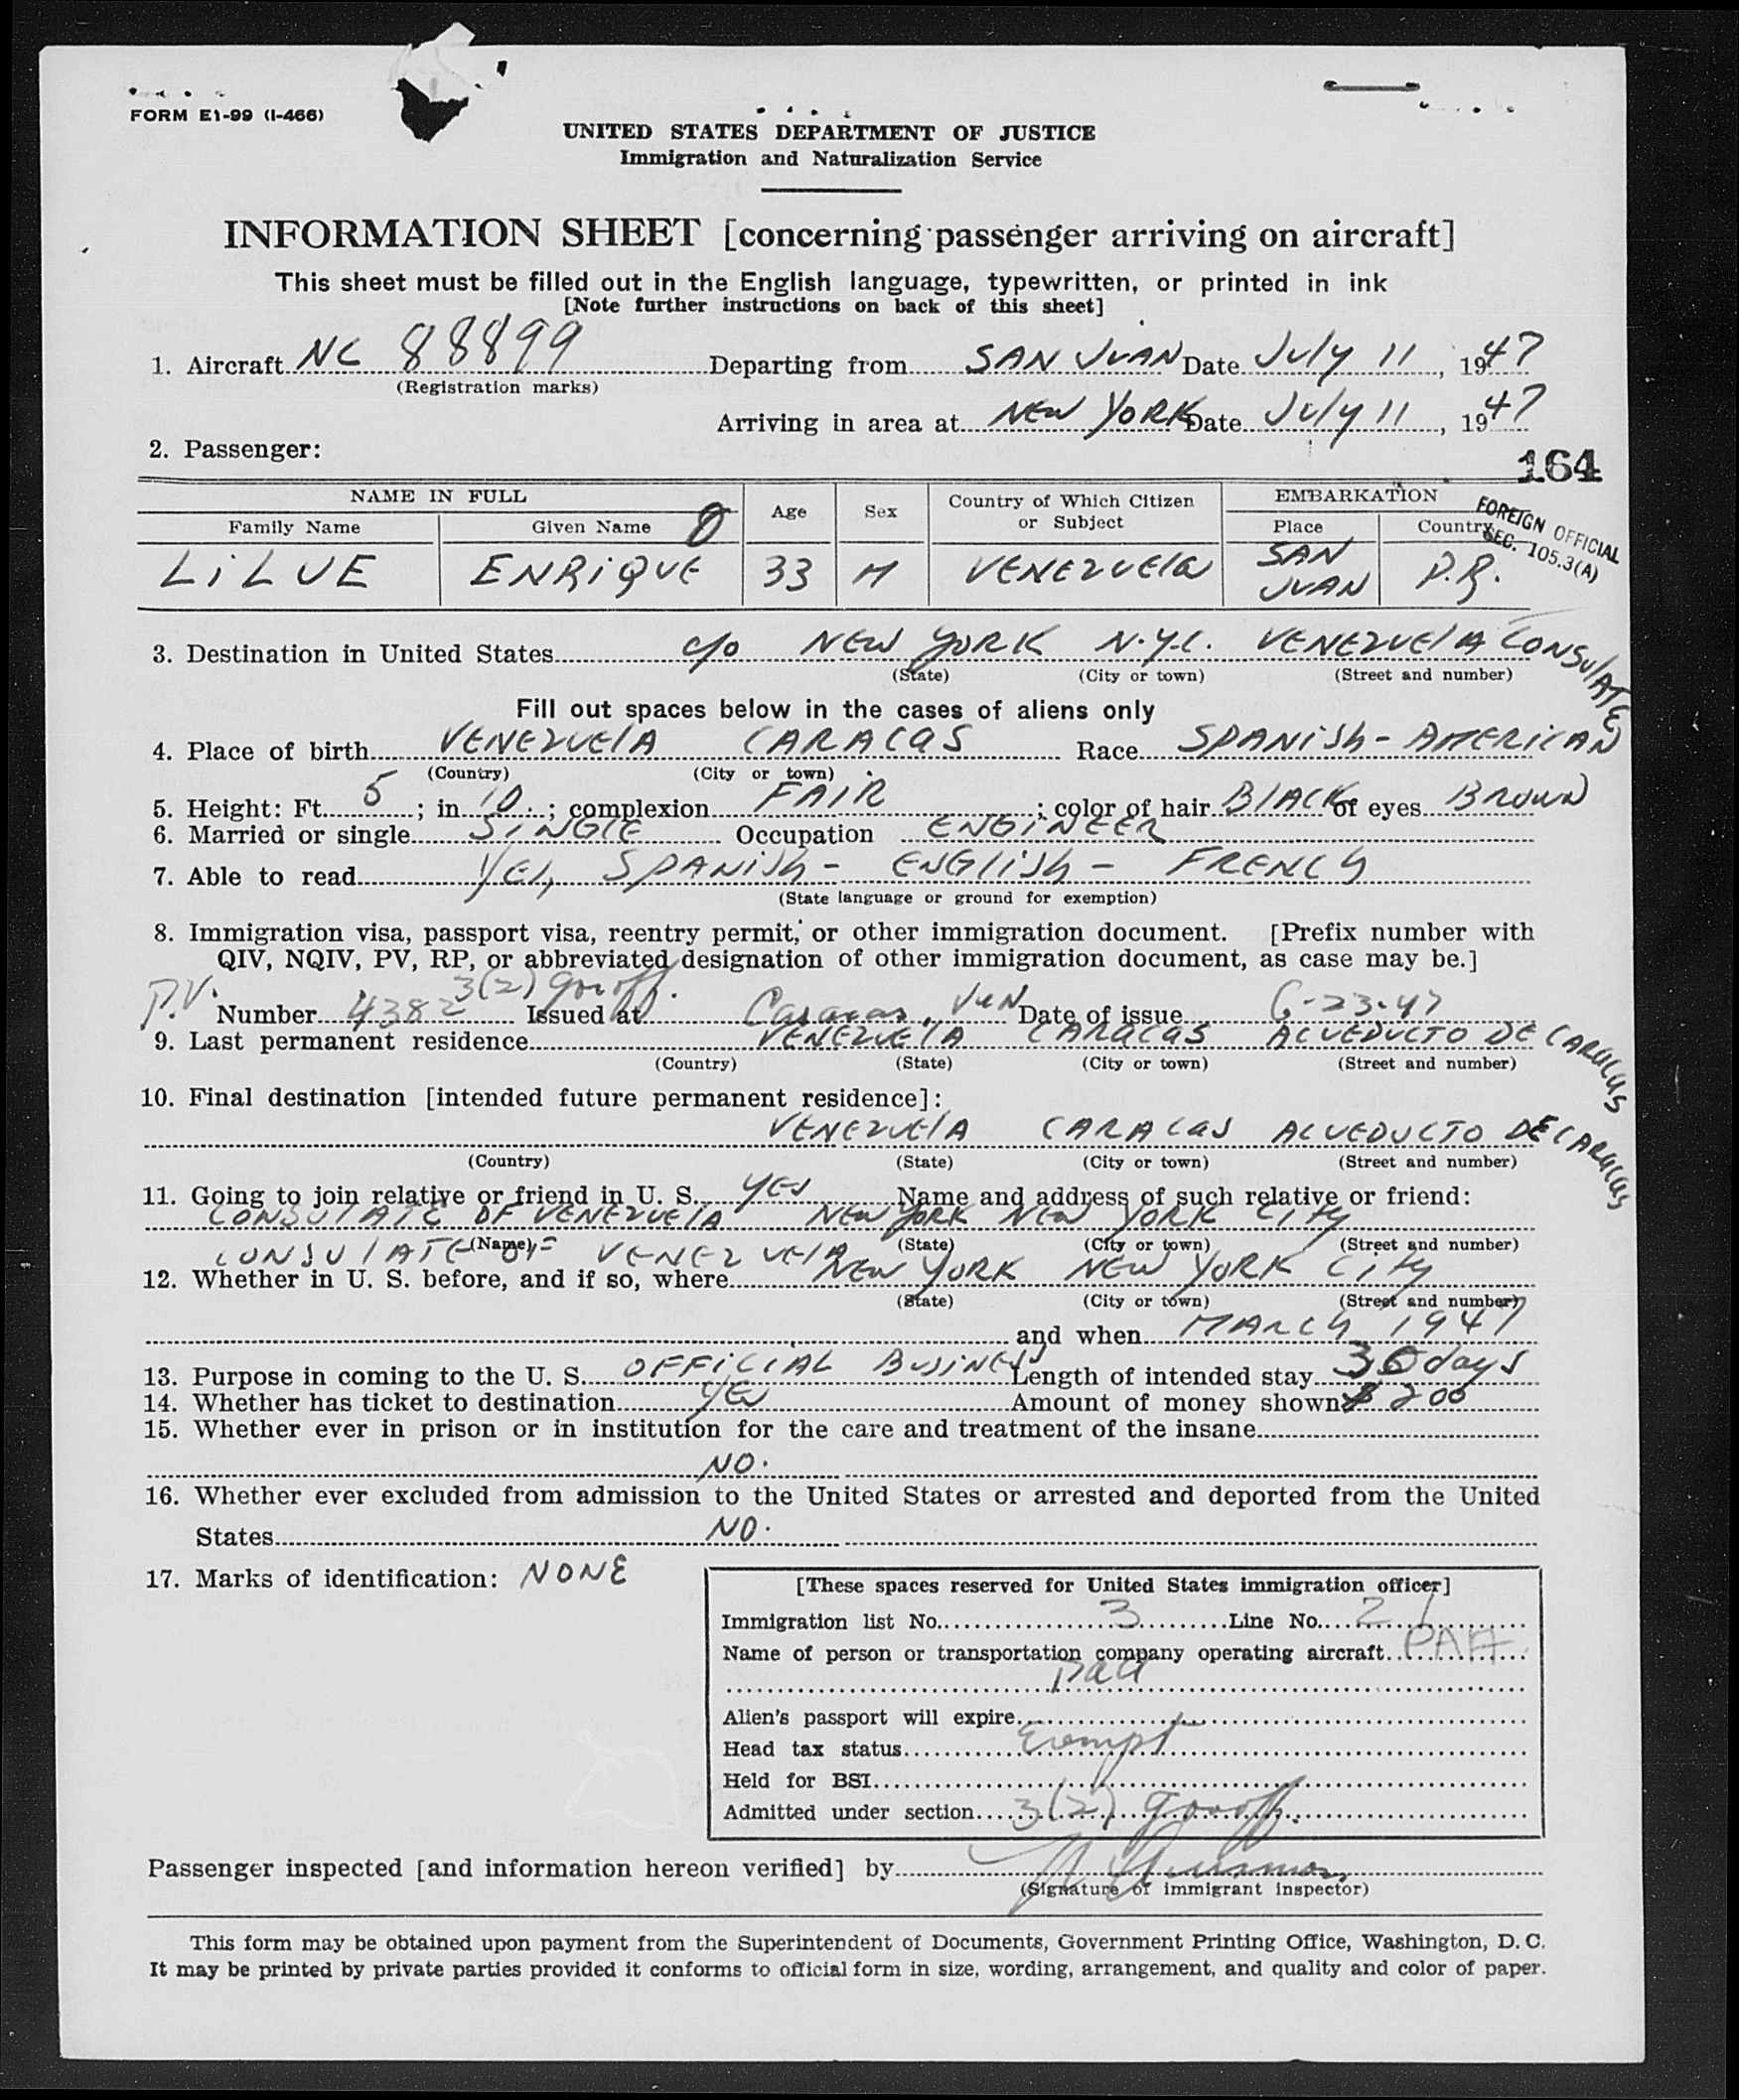 FORM E1-99 (I-466)
UNITED STATES DEPARTMENT OF JUSTICE
Immigration and Naturalization Service
INFORMATION SHEET [concerning passenger arriving on aircraft]
This sheet must be filled out in the English language, typewritten, or printed in ink
[Note further instructions on back of this sheet]
1. Aircraft NC 88899 Departing from SAN JUAN Date July 11, 1947
(Registration marks)
Arriving in area at NEW YORK Date July 11, 1947
2. Passenger:
164
NAME IN FULL Age Sex Country of Which Citizen or Subject EMBARKATION
Family Name Given Name Place Country
FOREIGN OFFICIAL
SEC. 105.3(A)
LiLUE ENRiQUE 33 M VENEZUELA SAN JUAN P.R.
3. Destination in United States c/o NEW YORK N.Y.C. VENEZUELA CONSULATE
(State) (City or town) (Street and number)
Fill out spaces below in the cases of aliens only
4. Place of birth VENEZUELA CARACAS Race SPANISH-AMERICAN
(Country) (City or town)
5. Height: Ft. 5; in. 10; complexion FAIR; color of hair BLACK of eyes BROWN
6. Married or single SINGLE Occupation ENGINEER
7. Able to read YES, SPANISH - ENGLISH - FRENCH
(State language or ground for exemption)
8. Immigration visa, passport visa, reentry permit, or other immigration document. [Prefix number with
QIV, NQIV, PV, RP, or abbreviated designation of other immigration document, as case may be.]
3(2) govoff.
P.V. Number 4382 Issued at Caracas, Ven Date of issue 6-23-47
9. Last permanent residence VENEZUELA CARACAS ACUEDUCTO DE CARACAS
(Country) (State) (City or town) (Street and number)
10. Final destination [intended future permanent residence]:
VENEZUELA CARACAS ACUEDUCTO DE CARACAS
(Country) (State) (City or town) (Street and number)
11. Going to join relative or friend in U. S. YES Name and address of such relative or friend:
CONSULATE OF VENEZUELA NEW YORK NEW YORK CITY
(Name) (State) (City or town) (Street and number)
CONSULATE = VENEZUELA
12. Whether in U. S. before, and if so, where NEW YORK NEW YORK CITY
(State) (City or town) (Street and number)
and when MARCH 1947
13. Purpose in coming to the U. S. OFFICIAL BUSINESS Length of intended stay 30 days
14. Whether has ticket to destination YES Amount of money shown $ 200
15. Whether ever in prison or in institution for the care and treatment of the insane
NO.
16. Whether ever excluded from admission to the United States or arrested and deported from the United
States NO.
17. Marks of identification: NONE
[These spaces reserved for United States immigration officer]
Immigration list No. 3 Line No. 21
Name of person or transportation company operating aircraft PAA
paa
Alien's passport will expire
Head tax status Exempt
Held for BSI
Admitted under section 3(2) govoff.
Passenger inspected [and information hereon verified] by
(Signature of immigrant inspector)
This form may be obtained upon payment from the Superintendent of Documents, Government Printing Office, Washington, D. C.
It may be printed by private parties provided it conforms to official form in size, wording, arrangement, and quality and color of paper.